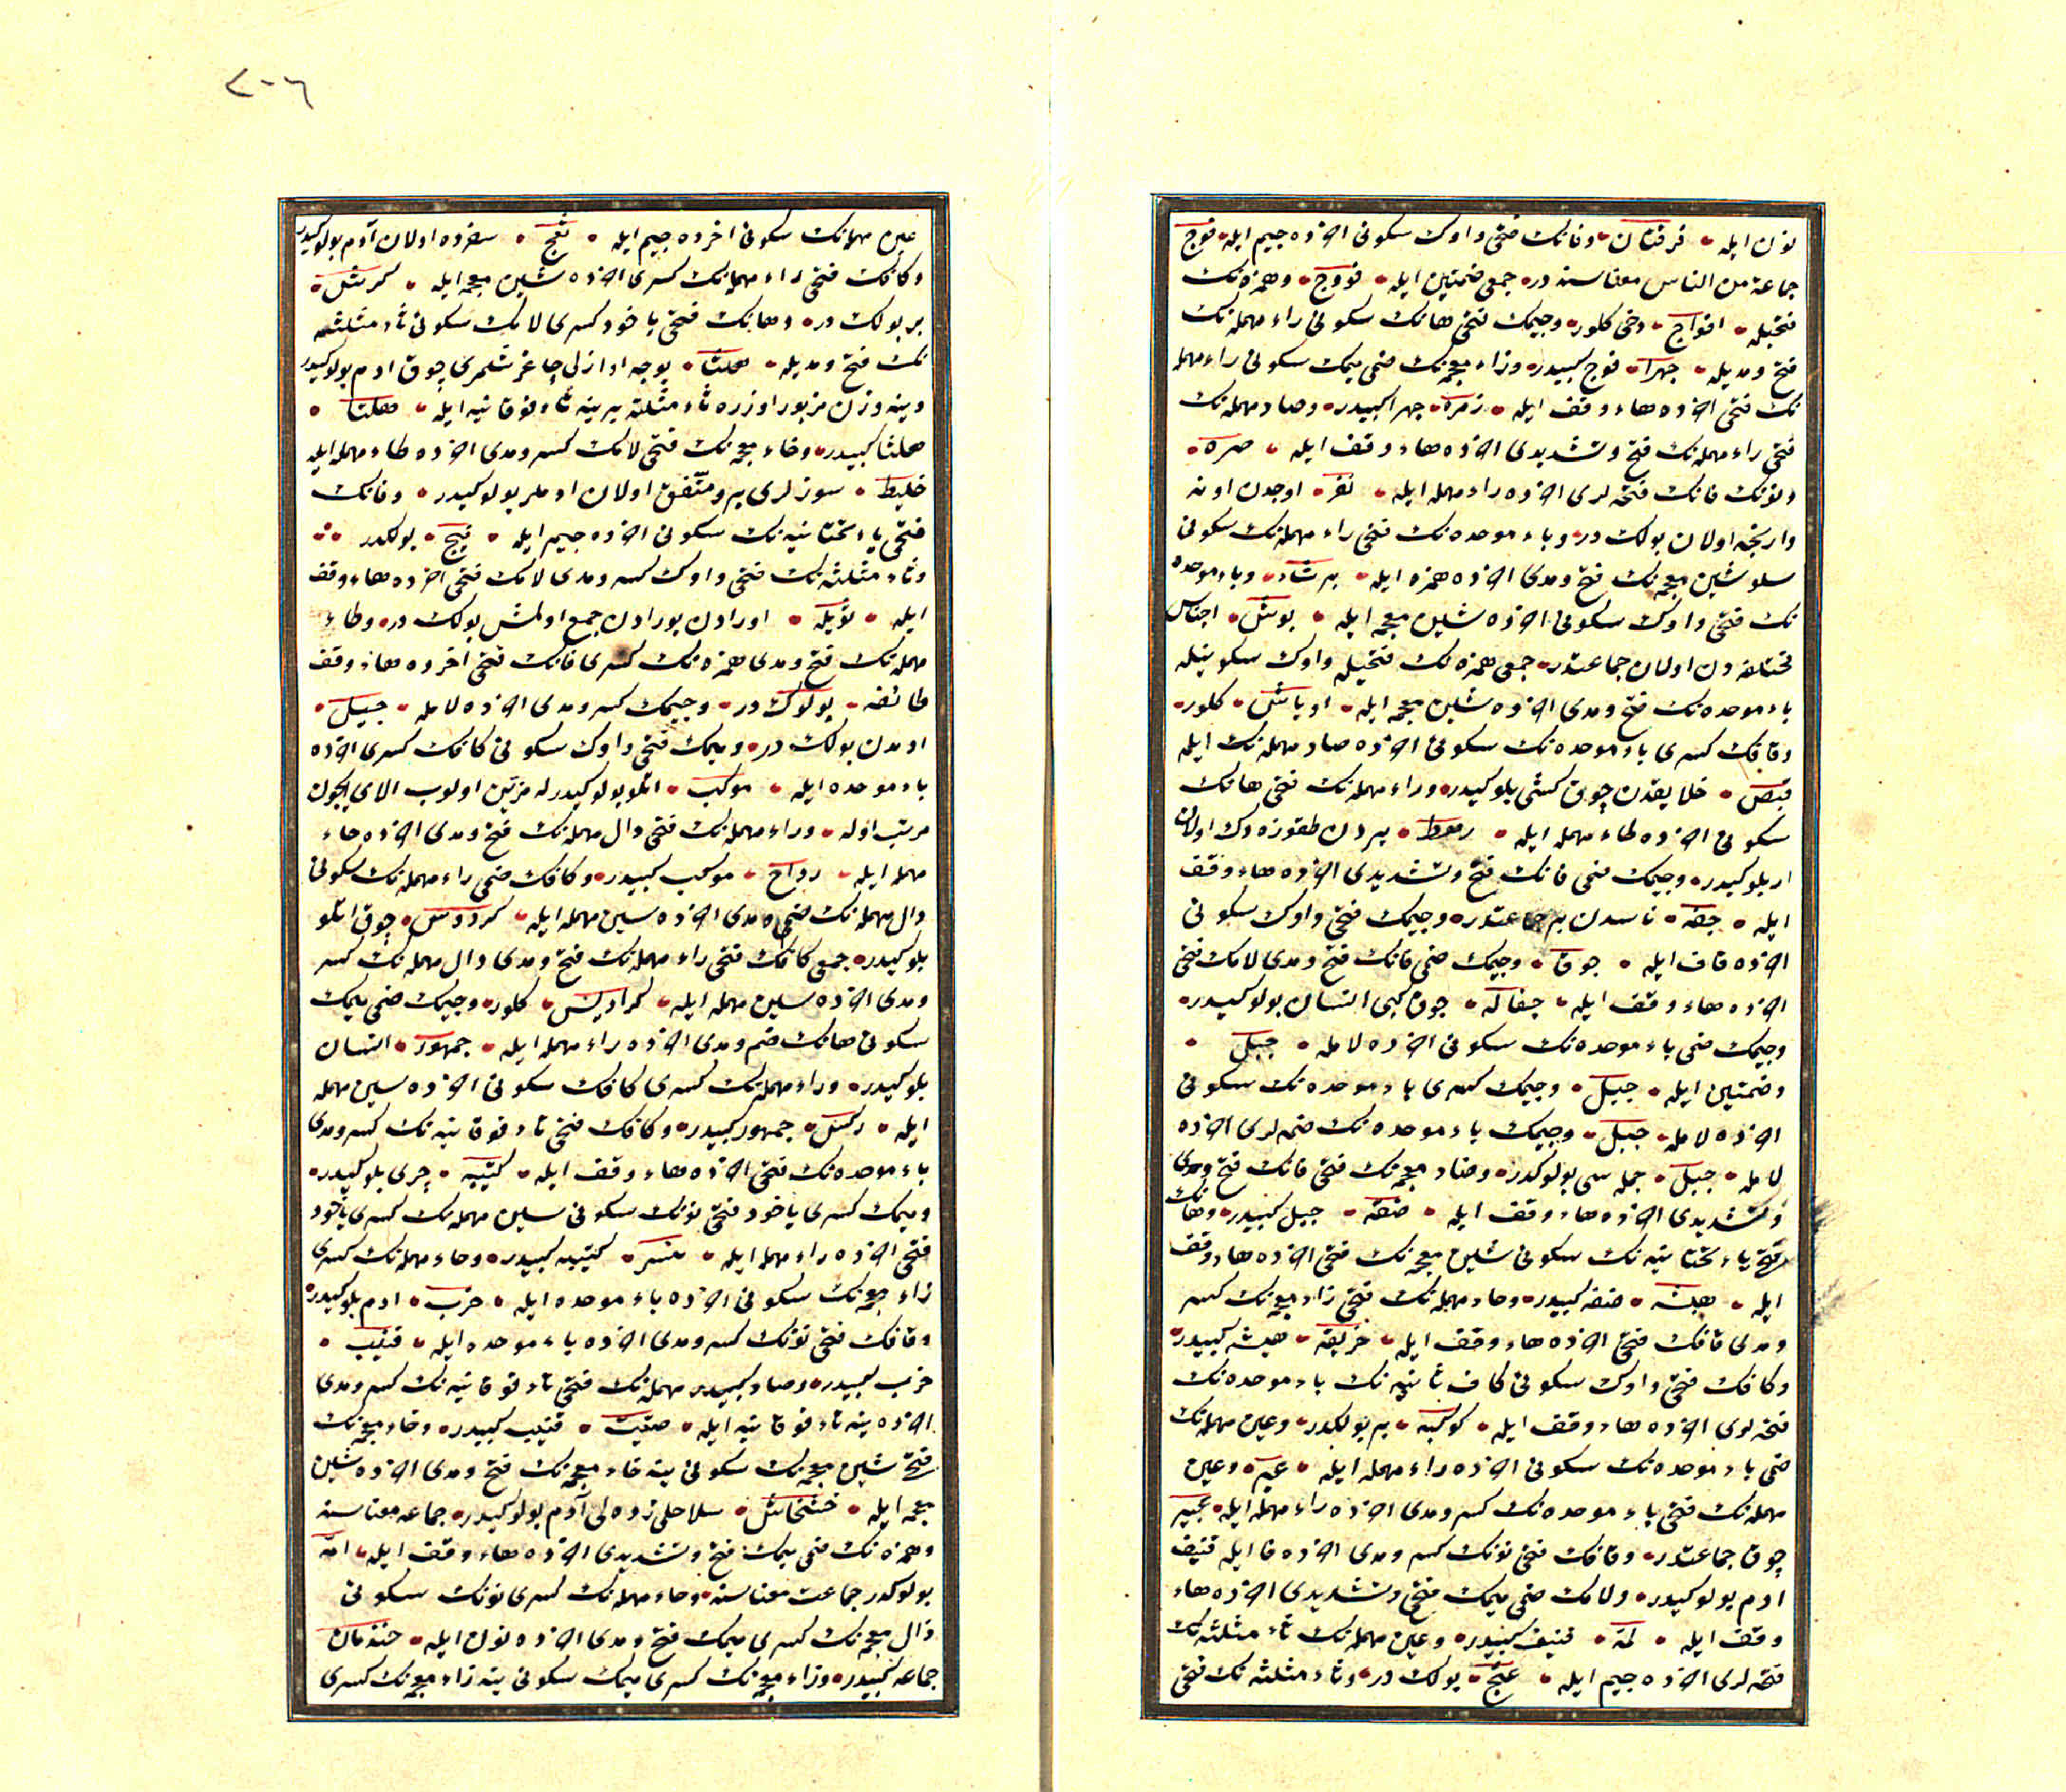 نون ایله فرقتان وفانك فتحی واوك سكونی اخرده جیم ایله فوج
جماعة من الناس معناسنه در جمعی ضمتین ایله فووج وهمزه نك
فتحیله افواج دخی كلور وجیمك فتحی هانك سكونی راء مهمله نك
فتح ومدیله جهرا فوج كبیدر وزاء معجمه نك ضمی میمك سكونی راء مهمله
نك فتحی اخرده هاء وقف ایله زمره جهرا كبیدر وصاد مهمله نك
فتحی راء مهمله نك فتح وتشدیدی اخرده هاء وقف ایله صره
ونونك فانك فتحه لری اخرده راء مهمله ایله نفر اوچدن اونه
وارنجه اولان بولك در وباء موحده نك فتحی راء مهمله نك سكونی
شین معجمه نك فتح ومدی اخرده همزه ایله برشاء وباء موحده
نك فتحی واوك سكونی اخرده شین معجمه ایله بوش اجناس
مختلفه دن اولان جماعتدر جمعی همزه نك فتحیله واوك سكونیله
باء موحده نك فتح ومدی اخرده شین معجمه ایله اوباش كلور
وقافك كسری باء موحده نك سكونی اخرده صاد مهمله نك ایله
قبص خلایقدن چوق كشی بلوكیدر وراء مهمله نك فتحی هانك
سكونی اخرده طاء مهمله ایله رهط بردن طقوزه دك اولان
ار بلوكیدر وجیمك ضمی فانك فتح وتشدیدی اخرده هاء وقف
ایله جفه ناسدن بر جماعتدر وجیمك فتحی واوك سكونی
اخرده قاف ایله جوق وجیمك ضمی فانك فتح ومدی لامك فتحی
اخرده هاء وقف ایله جفاله جوق كبی انسان بولوكیدر
وجیمك ضمی باء موحده نك سكونی اخرده لامله جبل
وضمتین ایله جبل وجیمك كسری باء موحده نك سكونی
اخرده لامله جبل وجیمك باء موحده نك ضمه لری اخرده
لامله جبل جمله سی بولوكدر وضاد معجمه نك فتحی فانك فتح ومدی
وتشدیدی اخرده هاء وقف ایله ضفه جبل كبیدر وهانك
فتحی یاء تحتانیه نك سكونی شین معجمه نك فتحی اخرده هاء وقف
ایله هیشه ضفه كبیدر وحاء مهمله نك فتحی زاء معجمه نك كسر
ومدی قافك فتحی اخرده هاء وقف ایله حزیقه هیشه كبیدر
وكافك فتحی واوك سكونی كاف ثانیه نك باء موحده نك
فتحه لری اخرده هاء وقف ایله كوكبه بر بولكدر وعین مهمله نك
ضمی باء موحده نك سكونی اخرده راء مهمله ایله عبر وعین
مهمله نك فتحی باء موحده نك كسر ومدی اخرده راء مهمله ایله عبیر
چوق جماعتدر وقافك فتحی نونك كسر ومدی اخرده فا ایله قنیف
ادم بولوكیدر ولامك ضمی میمك فتحی وتشدیدی اخرده هاء
وقف ایله لمه قنیف كبیدر وعین مهمله نك ثاء مثلثه نك
فتحه لری اخرده جیم ایله عثج بولك در وثاء مثلثه نك فتحی
عین مهمله نك سكونی اخرده جیم ایله ثعج سفرده اولان آدم بولوكیدر
وكافك فتحی راء مهمله نك كسری اخرده شین معجمه ایله كرش
بر بولك در وهانك فتحی یاخود كسری لامك سكونی ثاء مثلثه
نك فتح ومدیله هلثا یوجه اوازلی چاغرشلری چوق ادم بولوكیدر
وینه وزن مزبور اوزره ثاء مثلثه یرینه تاء فوقانیه ایله هلتا
هلثا كبیدر وخاء معجمه نك فتحی لامك كسر ومدی اخرده طاء مهمله ایله
خلیط سوزلری بر ومتفق اولان ادملر بولوكیدر وفانك
فتحی یاء تحتانیه نك سكونی اخرده جیم ایله فیج بولكدر
وثاء مثلثه نك فتحی واوك كسر ومدی لامك فتحی اخرده هاء وقف
ایله ثویله اورادن بورادن جمع اولمش بولك در وطاء
مهمله نك فتح ومدی همزه نك كسری فانك فتحی اخرده هاء وقف
طائفه بولوك در وجیمك كسر ومدی اخرده لامله جیل
ادمدن بولك در ومیمك فتحی واوك سكونی كافك كسری اخرده
باء موحده ایله موكب اتلو بولوكیدر له مزین اولوب الای ایچون
مرتب اوله وراء مهمله نك فتحی دال مهمله نك فتح ومدی اخرده حاء
مهمله ایله رداح موكب كبیدر وكافك ضمی راء مهمله نك سكونی
دال مهمله نك ضمی ومدی اخرده سین مهمله ایله كردوس چوق اتلو
بلوكیدر جمعی كافك فتحی راء مهمله نك فتح ومدی دال مهمله نك كسر
ومدی اخرده سین مهمله ایله كرادیس كلور وجیمك ضمی میمك
سكونی هانك ضم ومدی اخرده راء مهمله ایله جمهور انسان
بلوكیدر وراء مهمله نك كسری كافك سكونی اخرده سین مهمله
ایله ركس جمهور كبیدر وكافك فتحی تاء فوقانیه نك كسر ومدی
باء موحده نك فتحی اخرده هاء وقف ایله كتیبه چری بلوكیدر
ومیمك كسری یاخود فتحی نونك سكونی سین مهمله نك كسری یاخود
فتحی اخرده راء مهمله ایله منسر كتیبه كبیدر وحاء مهمله نك كسری
زاء معجمه نك سكونی اخرده باء موحده ایله حزب ادم بلوكیدر
وقافك فتحی نونك كسر ومدی اخرده باء موحده ایله قنیب
حزب كبیدر وصاد مهمله نك فتحی تاء فوقانیه نك كسر ومدی
اخرده ینه تاء فوقانیه ایله صتیت قنیب كبیدر وخاء معجمه نك
فتحی شین معجمه نك سكونی ینه خاء معجمه نك فتح ومدی اخرده شین
معجمه ایله خشخاش سلاحلی زرهلی آدم بولوكیدر جماعه معناسنه
وهمزه نك ضمی میمك فتح وتشدیدی اخرده هاء وقف ایله امة
بولوكدر جماعت معناسنه وحاء مهمله نك كسری نونك سكونی
ذال معجمه نك كسری میمك فتح ومدی اخرده نون ایله حنذمان
جماعه كبیدر وزاء معجمه نك كسری میمك سكونی ینه زاء معجمه نك كسری
٢٠٦